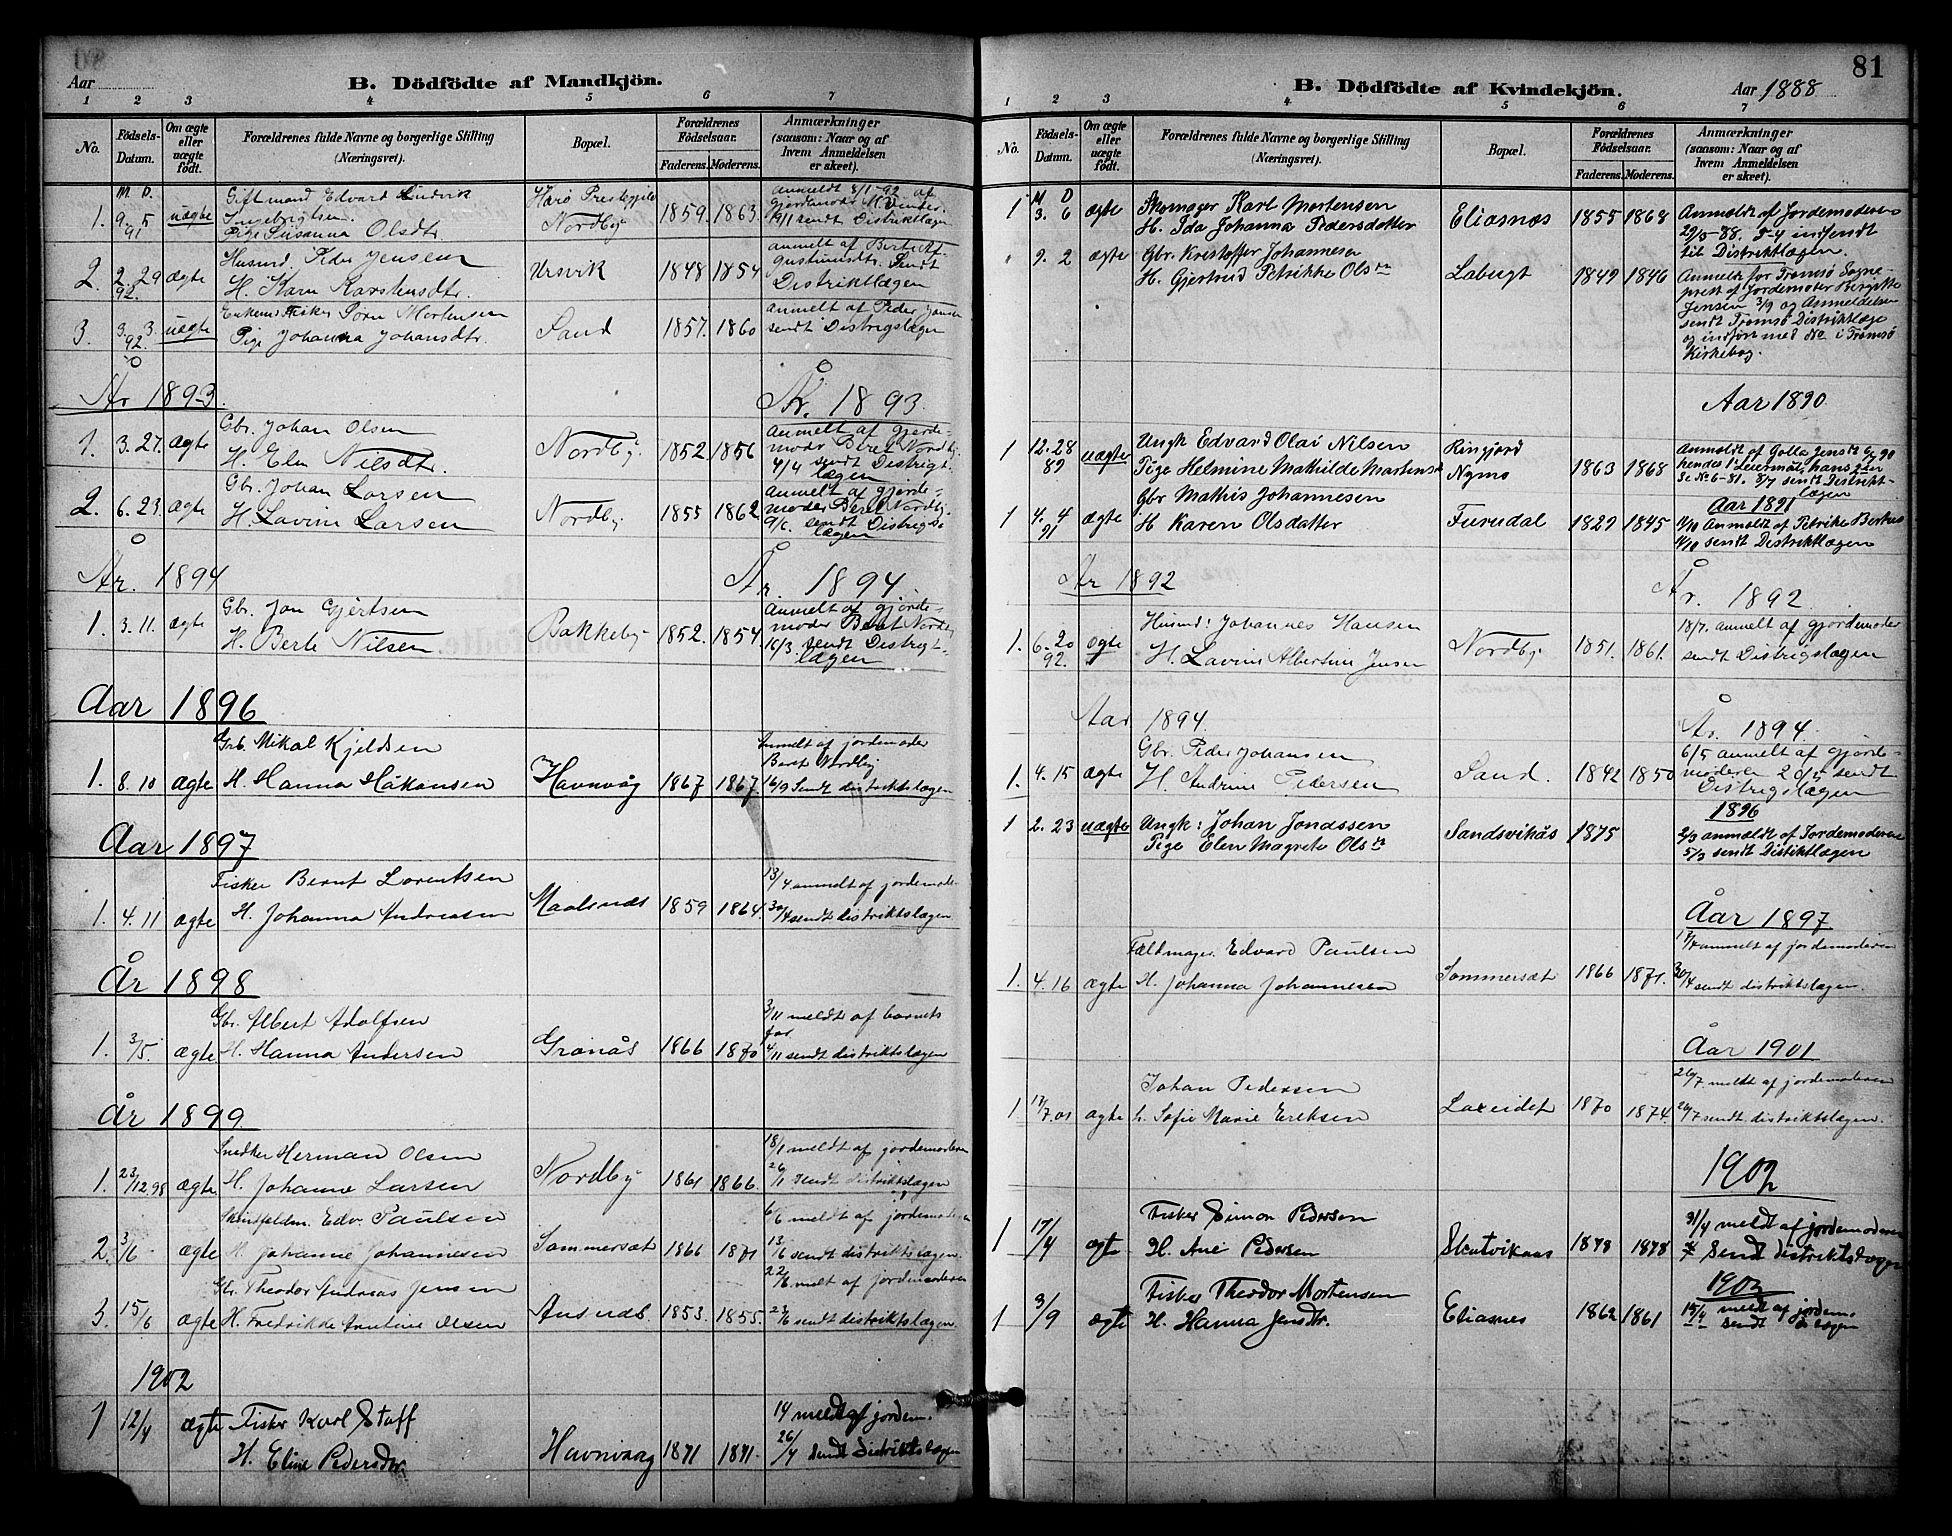 Aar
B. Dödfödte af Mandkjön.
1 2 3 4 5 6 7
No.
Födsels-Datum.
Om ægte eller uægte födt.
Forældrenes fulde Navne og borgerlige Stilling (Næringsvei).
Bopæl.
Forældrenes Födselsaar.
Faderens. Moderens.
Anmærkninger (saasom: Naar og af hvem Anmeldelsen er skeet).
M. D.
Giftmand Edvard Ludvik
Ingebrigtsen.
1. 9. 5 91 uægte Pige Susanna Olsdtr. Nordby 1859. 1863.
anmeldt 8/1-92 af
19/1 sendt Distriktlægen
Husmd. Peder Jensen
2. 2. 29 92. ægte H. Karn Karstensdtr. Ursvik 1848 1854
Sendt
Distriktlægen
Enkemd Fisker Sørn Mortensen
3. 3. 3. 92. uægte Pige Johanna Johansdtr. Sand 1857. 1860
anmelt af Peder Jansen
sendt Distrigslægen
År 1893. År. 1893.
Gbr. Johan Olsen
1. 3. 27. ægte H. Elen Nilsdtr. Nordby 1852. 1856
anmelt af gjorde-
moder Beret Nordby.
4/4 sendt Distrigt-
lægen
Gbr. Johan Larsen
2. 6. 23. ægte H. Lavine Larsen Nordby 1855 1862
anmelt af gjorde-
moder Beret Nordby.
sendt Distrigs-
lægen
År. 1894 År. 1894.
Gbr. Jon Gjertsen
1. 3. 11. ægte H. Berte Nilsen Bakkeby 1852. 1854.
anmelt af gjorde-
moder Beret Nordby
16/3. sendt Distrigt-
lægen
Aar 1896
Grb. Mikal Kjeldsen
1. 8. 10 ægte H. Hanna Håkonsen Havnvåg 1867 1867.
Anmelt af jordemoder
Beret Nordby
16/9 Sendt distriktslægen
Aar 1897
Fisker Bernt Lorentsen
1. 4. 11 ægte H. Johanna Andreasen Maalsnæs 1859 1864.
13/4 anmeldt af jordemode-
30/4 sendt distriktslægen
År 1898
Gbr. Albert Adolfsen
1. 3/5. ægte H. Hanna Andersen Grønås 1866 1870
3/11 meldt af barnets
far
4/11 sendt distriktslægen
År 1899
Snedker Herman Olsen
1. 23/12.98 ægte H. Johanne Larsen Nordby 1861 1866.
18/1 meldt af jordemoderen
26/1 sendt distriktslægen
Skindfeldm. Edv. Paulsen
2. 3/6 ægte H. Johanne Johannesen Sommersæt 1866 1871
6/6 meldt af jordemoderen
13/6 sendt distriktslægen.
Gbr. Theodor Andreas Jensen
3. 15/6 ægte H. Fredrikke Antine Olsen Ansnæs. 1853. 1855.
22/6 melt af jordemoderen
23/6 sendt distriktslægen.
1902
1 12/4 ægte Fisker Karl Staff
H. Eline Pedersdtr. Havnvaag 1871 1871.
14 meldt af jordem.
26/4 sendt Distriktslægen
81
B. Dödfödte af Kvindekjön. Aar 1888
1 2 3 4 5 6 7
No.
Födsels-Datum.
Om ægte eller uægte födt.
Forældrenes fulde Navne og borgerlige Stilling (Næringsvei).
Bopæl.
Forældrenes Födselsaar.
Faderens. Moderens.
Anmærkninger (saasom: Naar og af hvem Anmeldelsen er skeet).
M D
1 3. 6 ægte Skomager Karl Mortensen
H. Ida Johanna Pedersdatter Eliasnæs 1855 1868
Anmeldt af Jordemoderen
29/5-88. indsendt
til Distriktlægen.
9. 2 ægte Gbr. Kristoffer Johannesen
H. Gjertrud Petrikke Olsn Labugt 1849 1846
Anmeldt for Tromsø Sogne-
prest af Jordemoder Bergitte
Jensen 3/9 og Anmeldelsen
sendt Tromsø Distriktlæge
og indført med No i Tromsø
Kirkebog.
Aar 1890
1 12. 28 89 uægte Ungk Edvard Olai Nilsen
Pige Helmine Mathilde Martens Ringjord Nymo 1863 1868
hendes 1 Leiermål, hans 2den
8/7 sendt Distrikt-
lægen
Aar 1891
Gbr Mathis Johannesen
1 4. 4 91 ægte H Karen Olsdatter Furudal 1829 1845
Anmeldt af Petrikke Berteus
sendt Distriktlægen
År 1892 År. 1892
Husmd: Johannes Hansen
1. 6. 20 92. ægte H. Lavine Albertine Jensen Nordby 1851. 1861.
18/7. anmelt af gjordemoder
sendt Distrigslægen
Aar 1894. År. 1894.
Gbr. Peder Johansen
1. 4. 15 ægte H. Andrine Pedersen Sand. 1842 1850
6/5 anmelt af gjorde-
moderen 20/5 sendt
Distrigslægen
1896
1 2. 23 uægte Ungk: Johan Jonassen
Pige Elen Magrete Olsn Sandsvikås 1875
2/3 anmældt af Jordemoderen
5/3 sendt Distiktlægen
Aar 1897
Fældmager. Edvard Paulsen
1. 4. 16 ægte H. Johanna Johannesen Sommersæt 1866 1871.
anmelt af jordemoderen
30/4 sendt distriktslægen.
Aar 1901
Johan Pedersen
1 17/7 01 ægte h. Sofie Marie Eriksen Laxeidet 1870 1874.
26/7 meldt af jordemoderen
26/7 sendt distriktslægen.
1902
Fisker Simon Pedersen
1 17/4 ægte H. Ane Pedersen Skutvikaas 1878 1878
meldt af jordemoderen
Sendt distriktslægen
1903
Fisker Theodor Mortensen
1 3/9 ægte H. Hanna Jensdtr. Eliasnes 1862 1861
meldt af jordem.
sendt D lægen